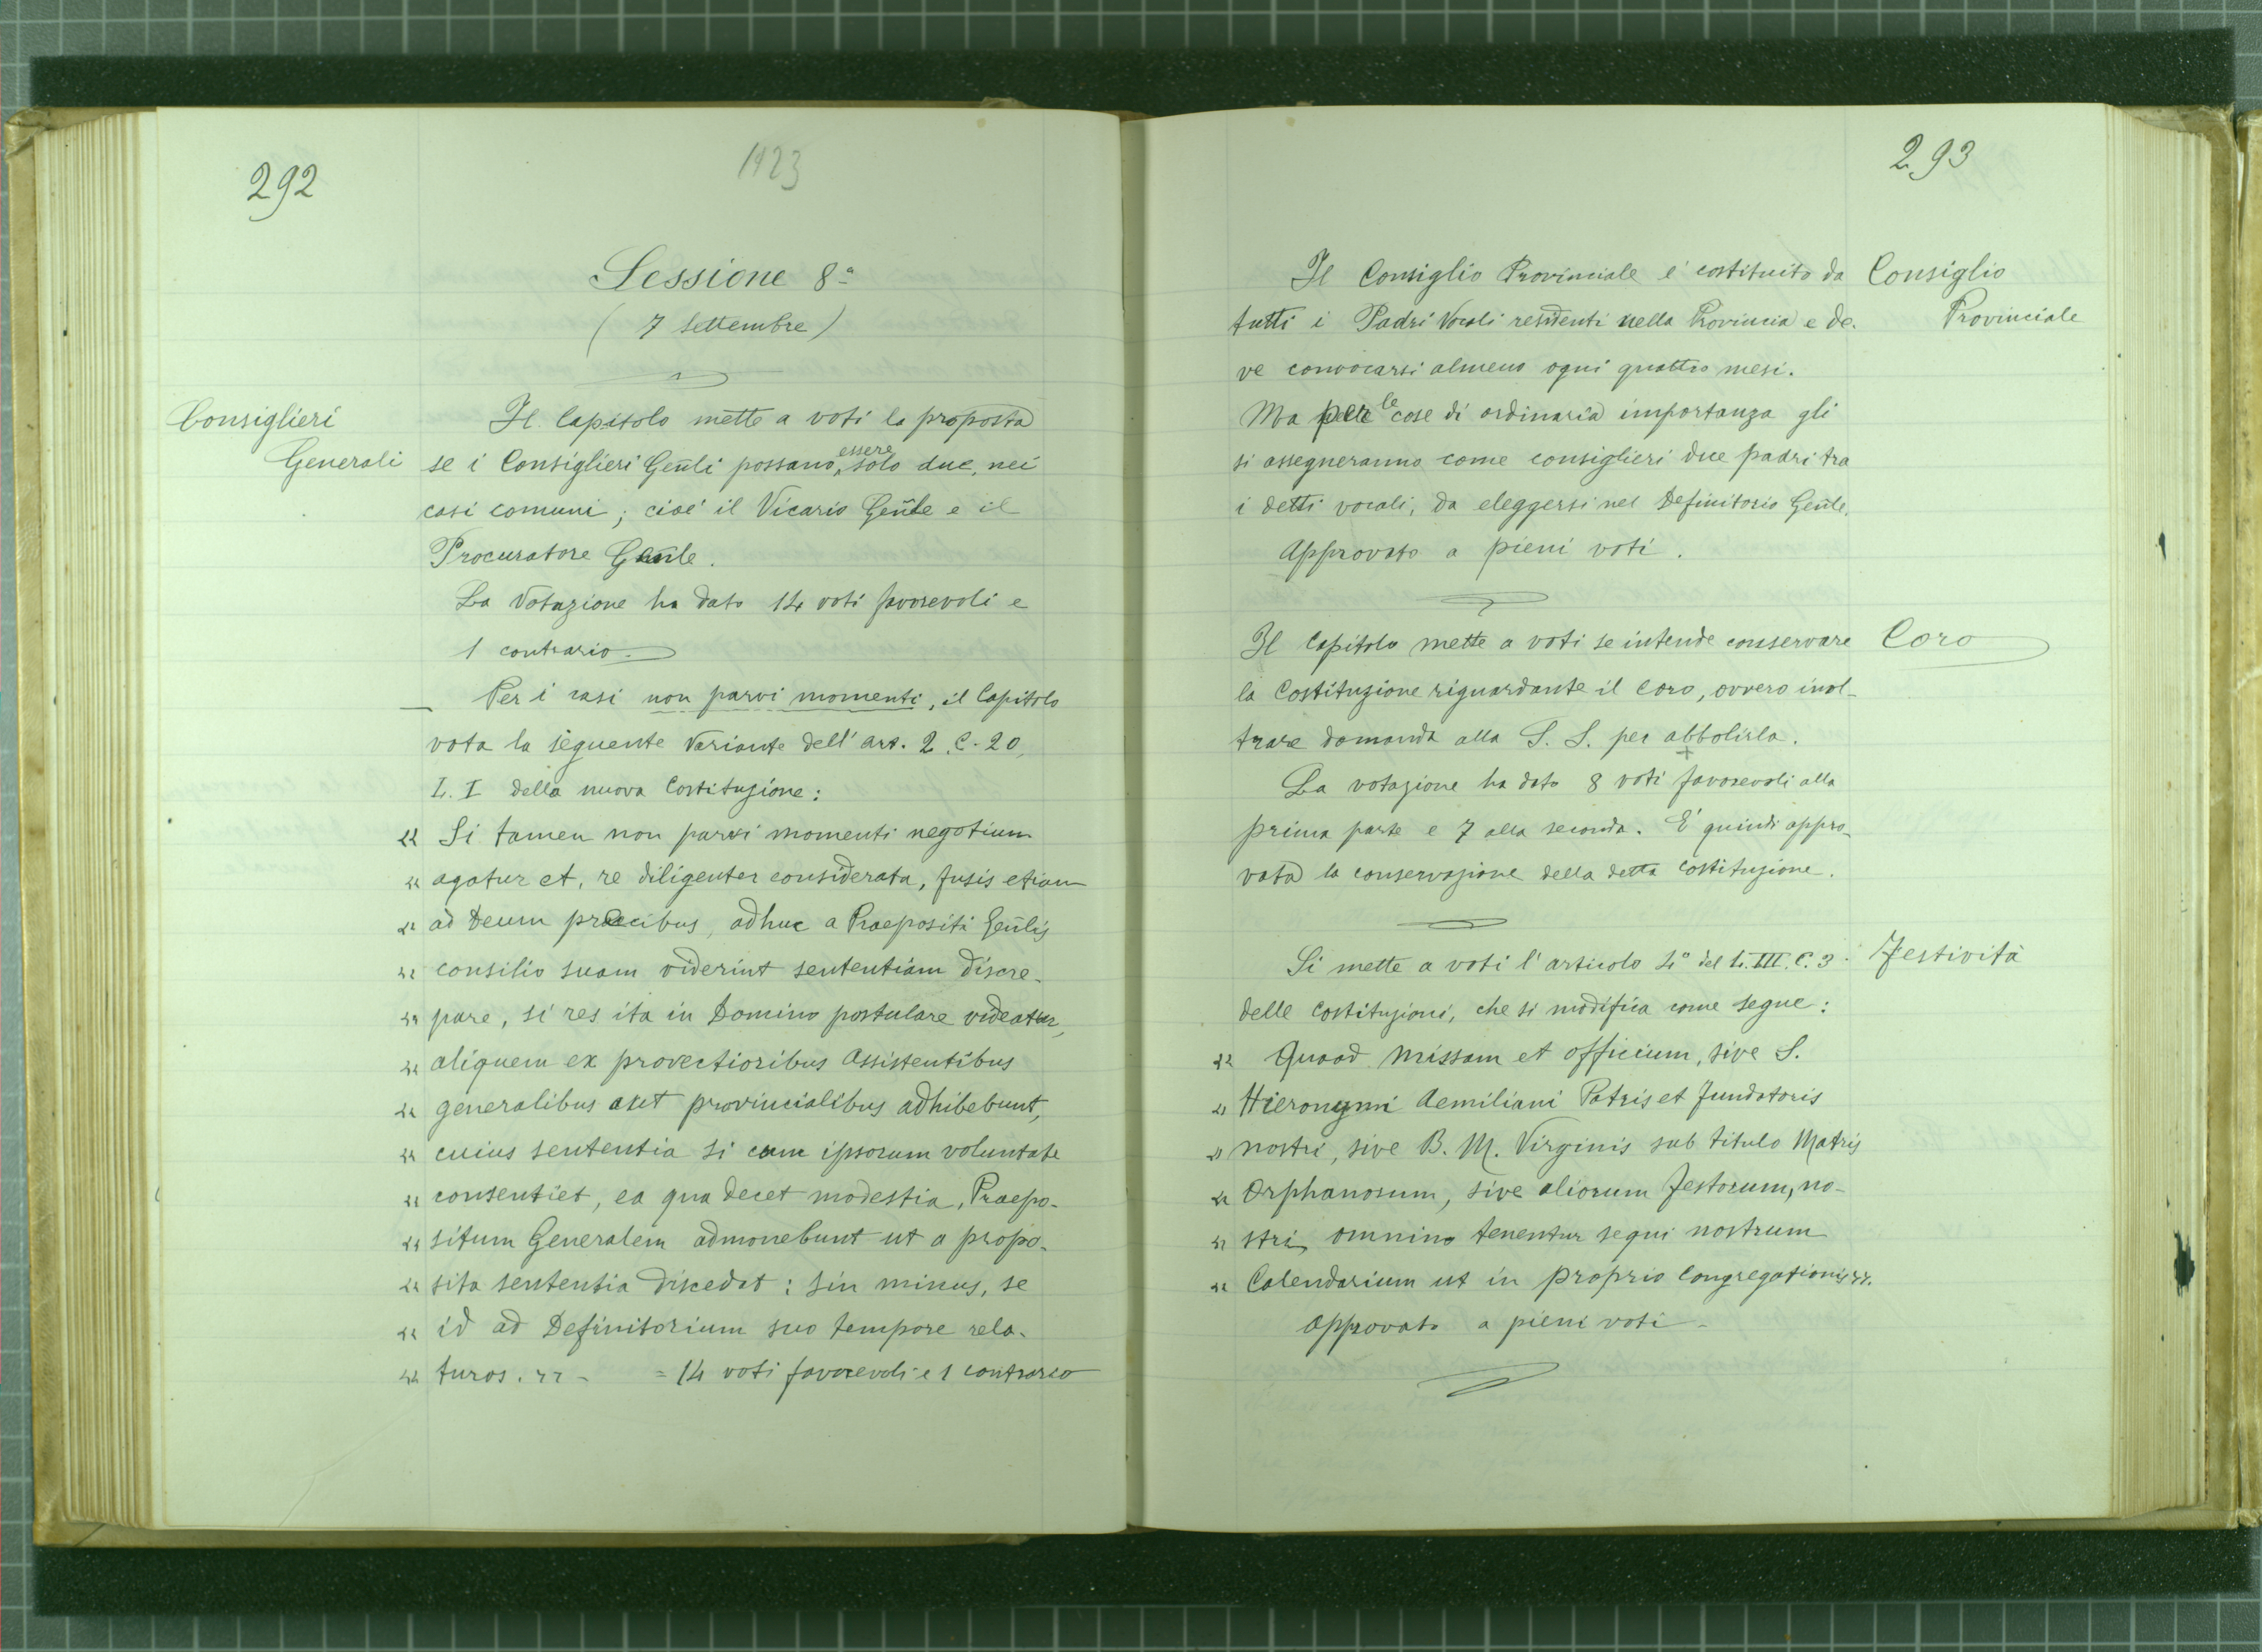 292
1923
Sessione 8ª
( 7 settembre )
Consiglieri
Generali
Il Capitolo mette a voti la proposta
se i Consiglieri Gen̄li possano essere solo due, nei
casi comuni ; cioè il Vicario Gen̄le e il
Procuratore Gen̄le.
La Votazione ha dato 14 voti favorevoli e
1 contrario.
Per i casi non parvi momenti, il Capitolo
vota la seguente Variante dell' art. 2. C. 20,
L. I della nuova Costituzione:
" Si tamen non parvi momenti negotium
" agatur et, re diligenter considerata, fusis etiam
" ad Deum precibus, adhuc a Praepositi Gen̄lis
" consilio suam viderint sententiam discre-
" pare, si res ita in Domino postulare videatur,
" aliquem ex provectioribus Assistentibus
" generalibus aut provincialibus adhibebunt,
" cuius sententia si cum ipsorum voluntate
" consentiet, ea qua decet modestia, Praepo-
" situm Generalem admonebunt ut a propo-
" sita sententia discedat : sin minus, se
" id ad Definitorium suo tempore rela-
" turos. " - = 14 voti favorevoli e 1 contrario
293
Il Consiglio Provinciale è costituito da
tutti i Padri Vocali residenti nella Provincia e de-
ve convocarsi almeno ogni quattro mesi.
Ma per le cose di ordinaria importanza gli
si assegneranno come consiglieri due padri tra
i detti vocali, da eleggersi nel Definitorio Gen̄le.
Approvato a pieni voti.
Consiglio
Provinciale
Il Capitolo mette a voti se intende conservare
la Costituzione riguardante il Coro, ovvero inol-
trare domanda alla S. S. per abbolirla.
La votazione ha dato 8 voti favorevoli alla
prima parte e 7 alla seconda. È quindi appro-
vata la conservazione della detta Costituzione.
Coro
Si mette a voti l'articolo 4° del L. III. C. 3
delle Costituzioni, che si modifica come segue :
" Quoad Missam et officium, sive S.
" Hieronymi Aemiliani Patris et Fundatoris
" nostri, sive B. M. Virginis sub titulo Matris
" Orphanorum, sive aliorum Festorum, no-
" stri omnino tenentur sequi nostrum
" Calendarium ut in proprio Congregationis ".
Approvato a pieni voti -
Festività